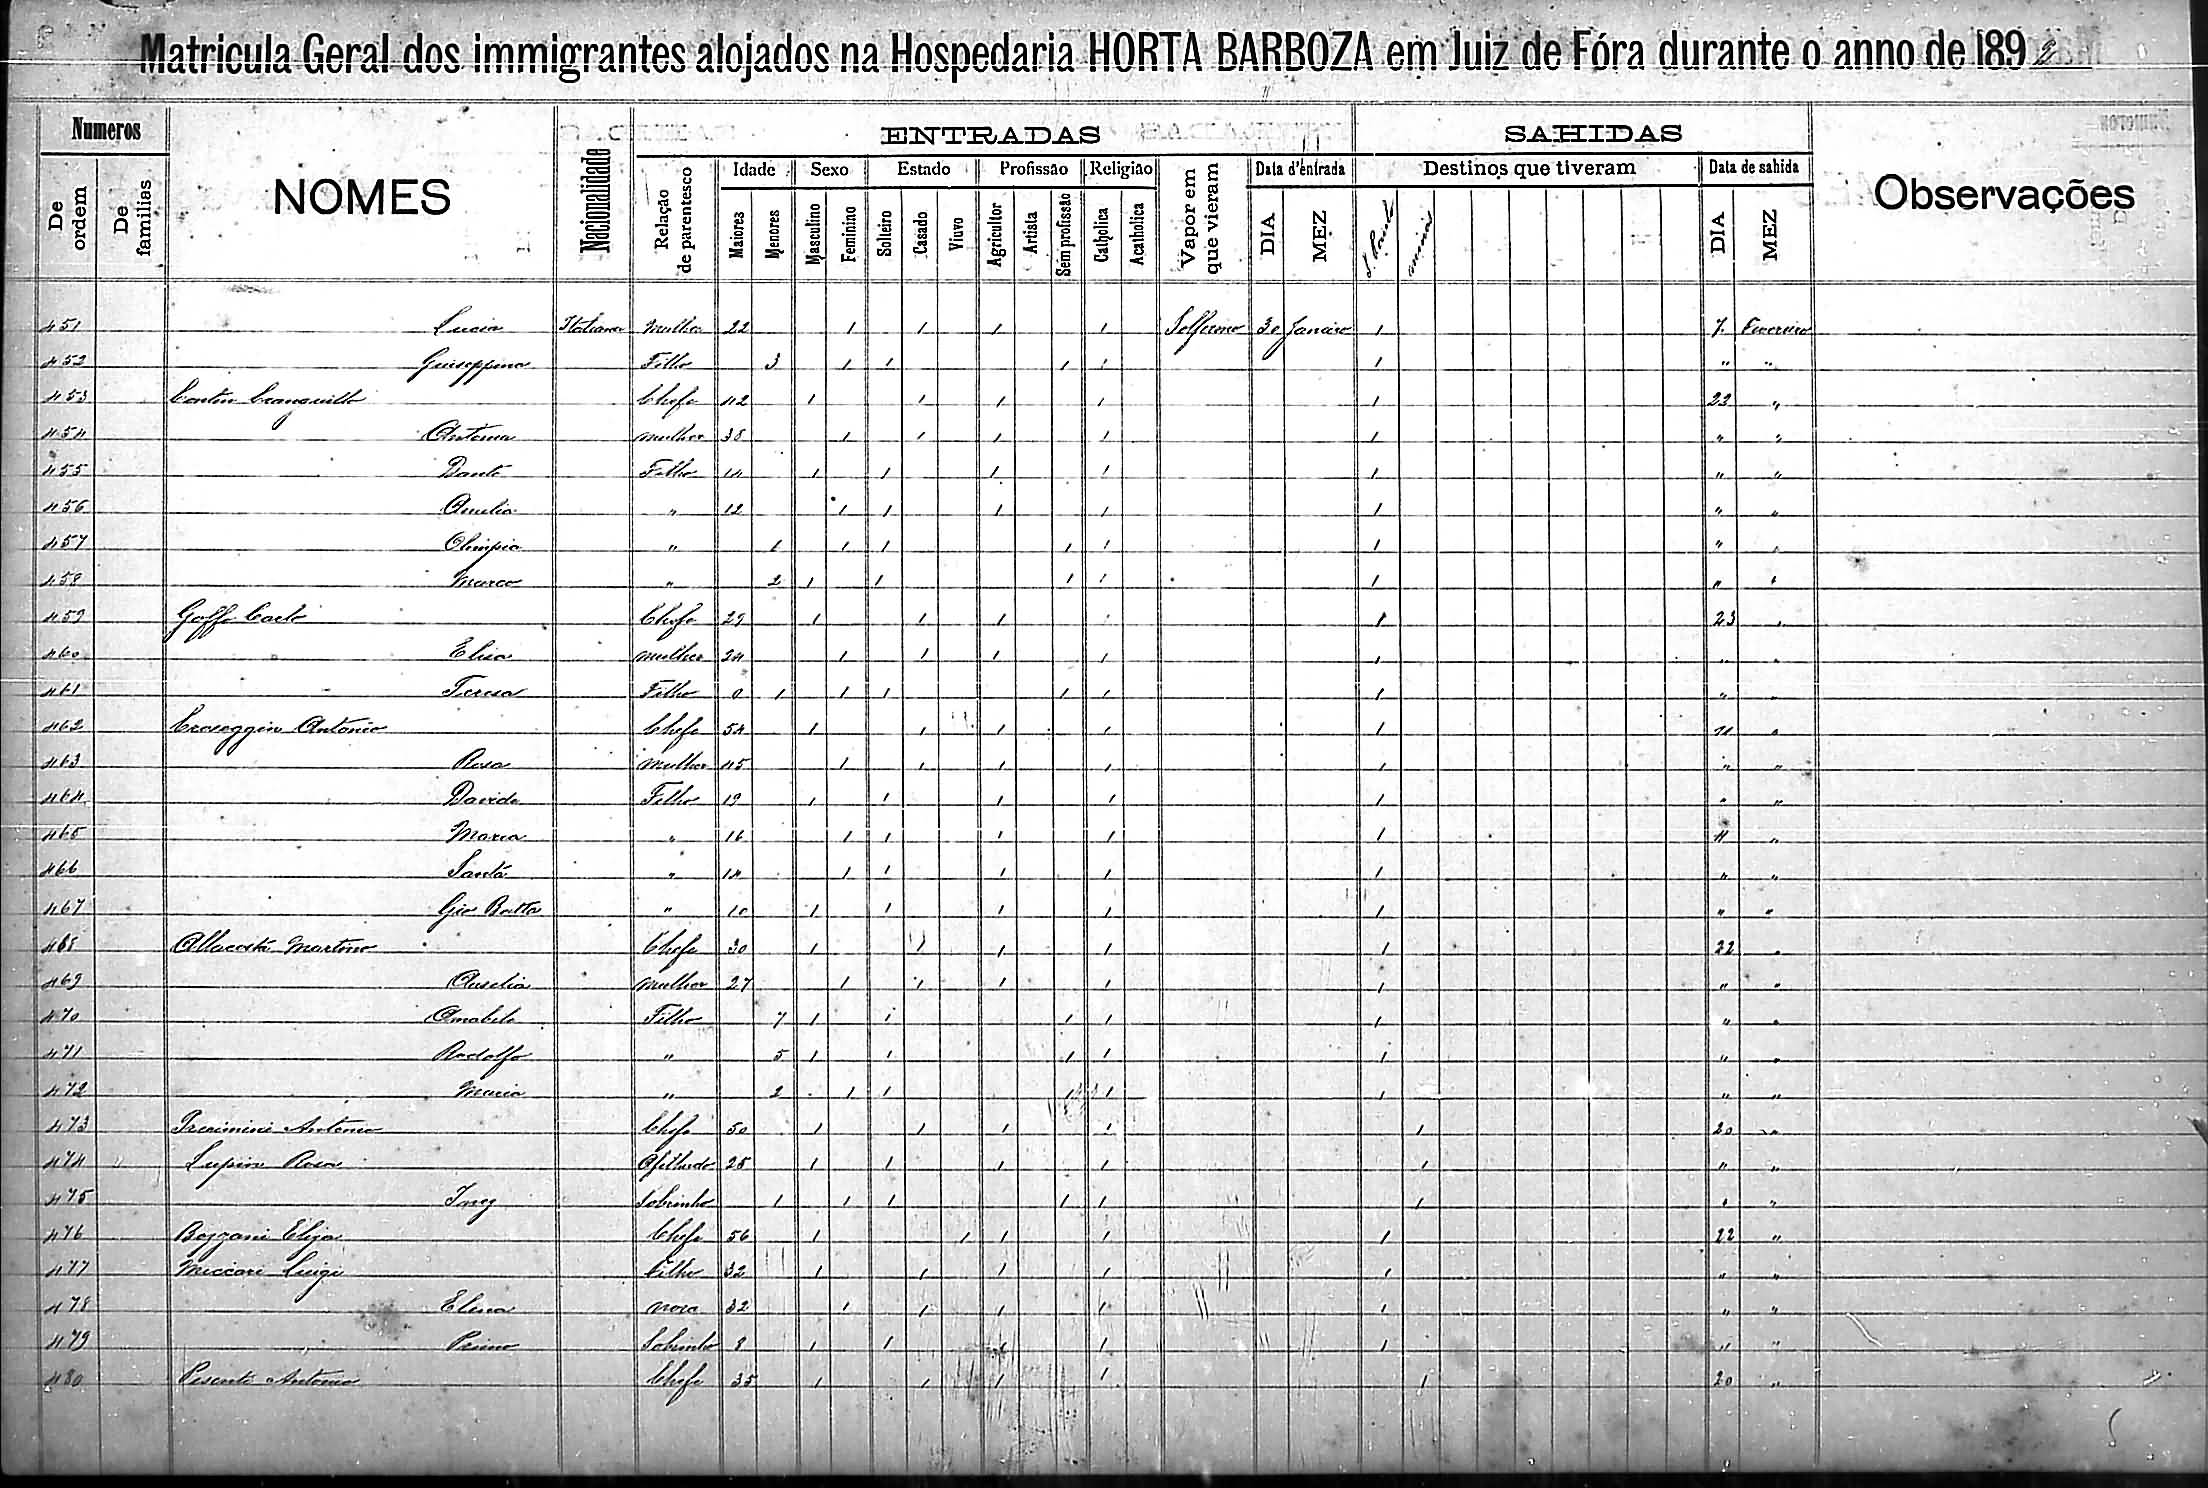 Matricula Geral dos immigrantes alojados na Hospedaria HORTA BARBOZA em Juiz de Fóra durante o anno de 1892
Numeros NOMES Nacionalidade ENTRADAS SAHIDAS Observações
De ordem De familias Relação de parentesco Idade Sexo Estado Profissão Religião Vapor em que vieram Data d'entrada Destinos que tiveram Data de sahida
Maiores Menores Masculino Feminino Solteiro Casado Viuvo Agricultor Artista Sem profissão Catholica Acatholica DIA MEZ S. Paulo Minas DIA MEZ
451 Lucia Italiana Mulher 22 1 1 1 1 Solferino 30 Janeiro 1 7 Fevereiro
452 Giuseppina Filho 3 1 1 1 1 1 " "
453 Chefe 42 1 1 1 1 1 22 "
454 Antonia mulher 38 1 1 1 1 1 " "
455 Dante Filho 14 1 1 1 1 1 " "
456 " 12 1 1 1 1 1 " "
457 Olimpia " 1 1 1 1 1 1 " "
458 Marco " 2 1 1 1 1 1 " "
459 Goffo Carlo Chefe 29 1 1 1 1 1 23 "
460 Elisa mulher 24 1 1 1 1 1 " "
461 Teresa Filho 0 1 1 1 1 1 1 " "
462 Antonio Chefe 54 1 1 1 1 1 " "
463 Rosa mulher 45 1 1 1 1 1 " "
464 Davide Filho 19 1 1 1 1 1 " "
465 Maria " 16 1 1 1 1 1 " "
466 Santa " 14 1 1 1 1 1 " "
467 Gio Batta " 10 1 1 1 1 1 " "
468 Martino Chefe 30 1 1 1 1 1 22 "
469 mulher 27 1 1 1 1 1 " "
470 Amabile Filho 7 1 1 1 1 1 " "
471 Rodolfo " 5 1 1 1 1 1 " "
472 Maria " 2 1 1 1 1 1 " "
473 Antonio Chefe 50 1 1 1 1 1 20 "
474 Lupin Rosa Afilhado 28 1 1 1 1 1 " "
475 Sobrinho 1 1 1 1 1 1 " "
476 Bozzani Eliza Chefe 56 1 1 1 1 1 22 "
477 Luigi Filho 32 1 1 1 1 1 " "
478 Elena nora 32 1 1 1 1 1 " "
479 Primo Sobrinho 8 1 1 1 1 1 " "
480 Pesenti Antonio Chefe 35 1 1 1 1 1 20 "